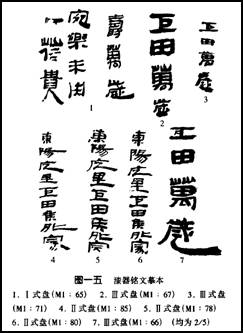 巨田萬歲
3
巨田萬歲
2
壽萬歲
宛樂未央
貴人
1
巨田萬歲
7
東陽庐里巨田侯外家
6
東陽庐里巨田侯外家
5
東陽庐里巨田侯外家
4
图一五 漆器铭文摹本
1．Ⅰ式盘（M1：65） 2．Ⅱ式盘（M1：67） 3．Ⅲ式盘
（M1：71） 4．Ⅱ式盘（M1：85） 5．Ⅱ式盘（M1：78）
6．Ⅱ式盘（M1：80） 7．Ⅲ式盘（M1：66）（均为2/5）